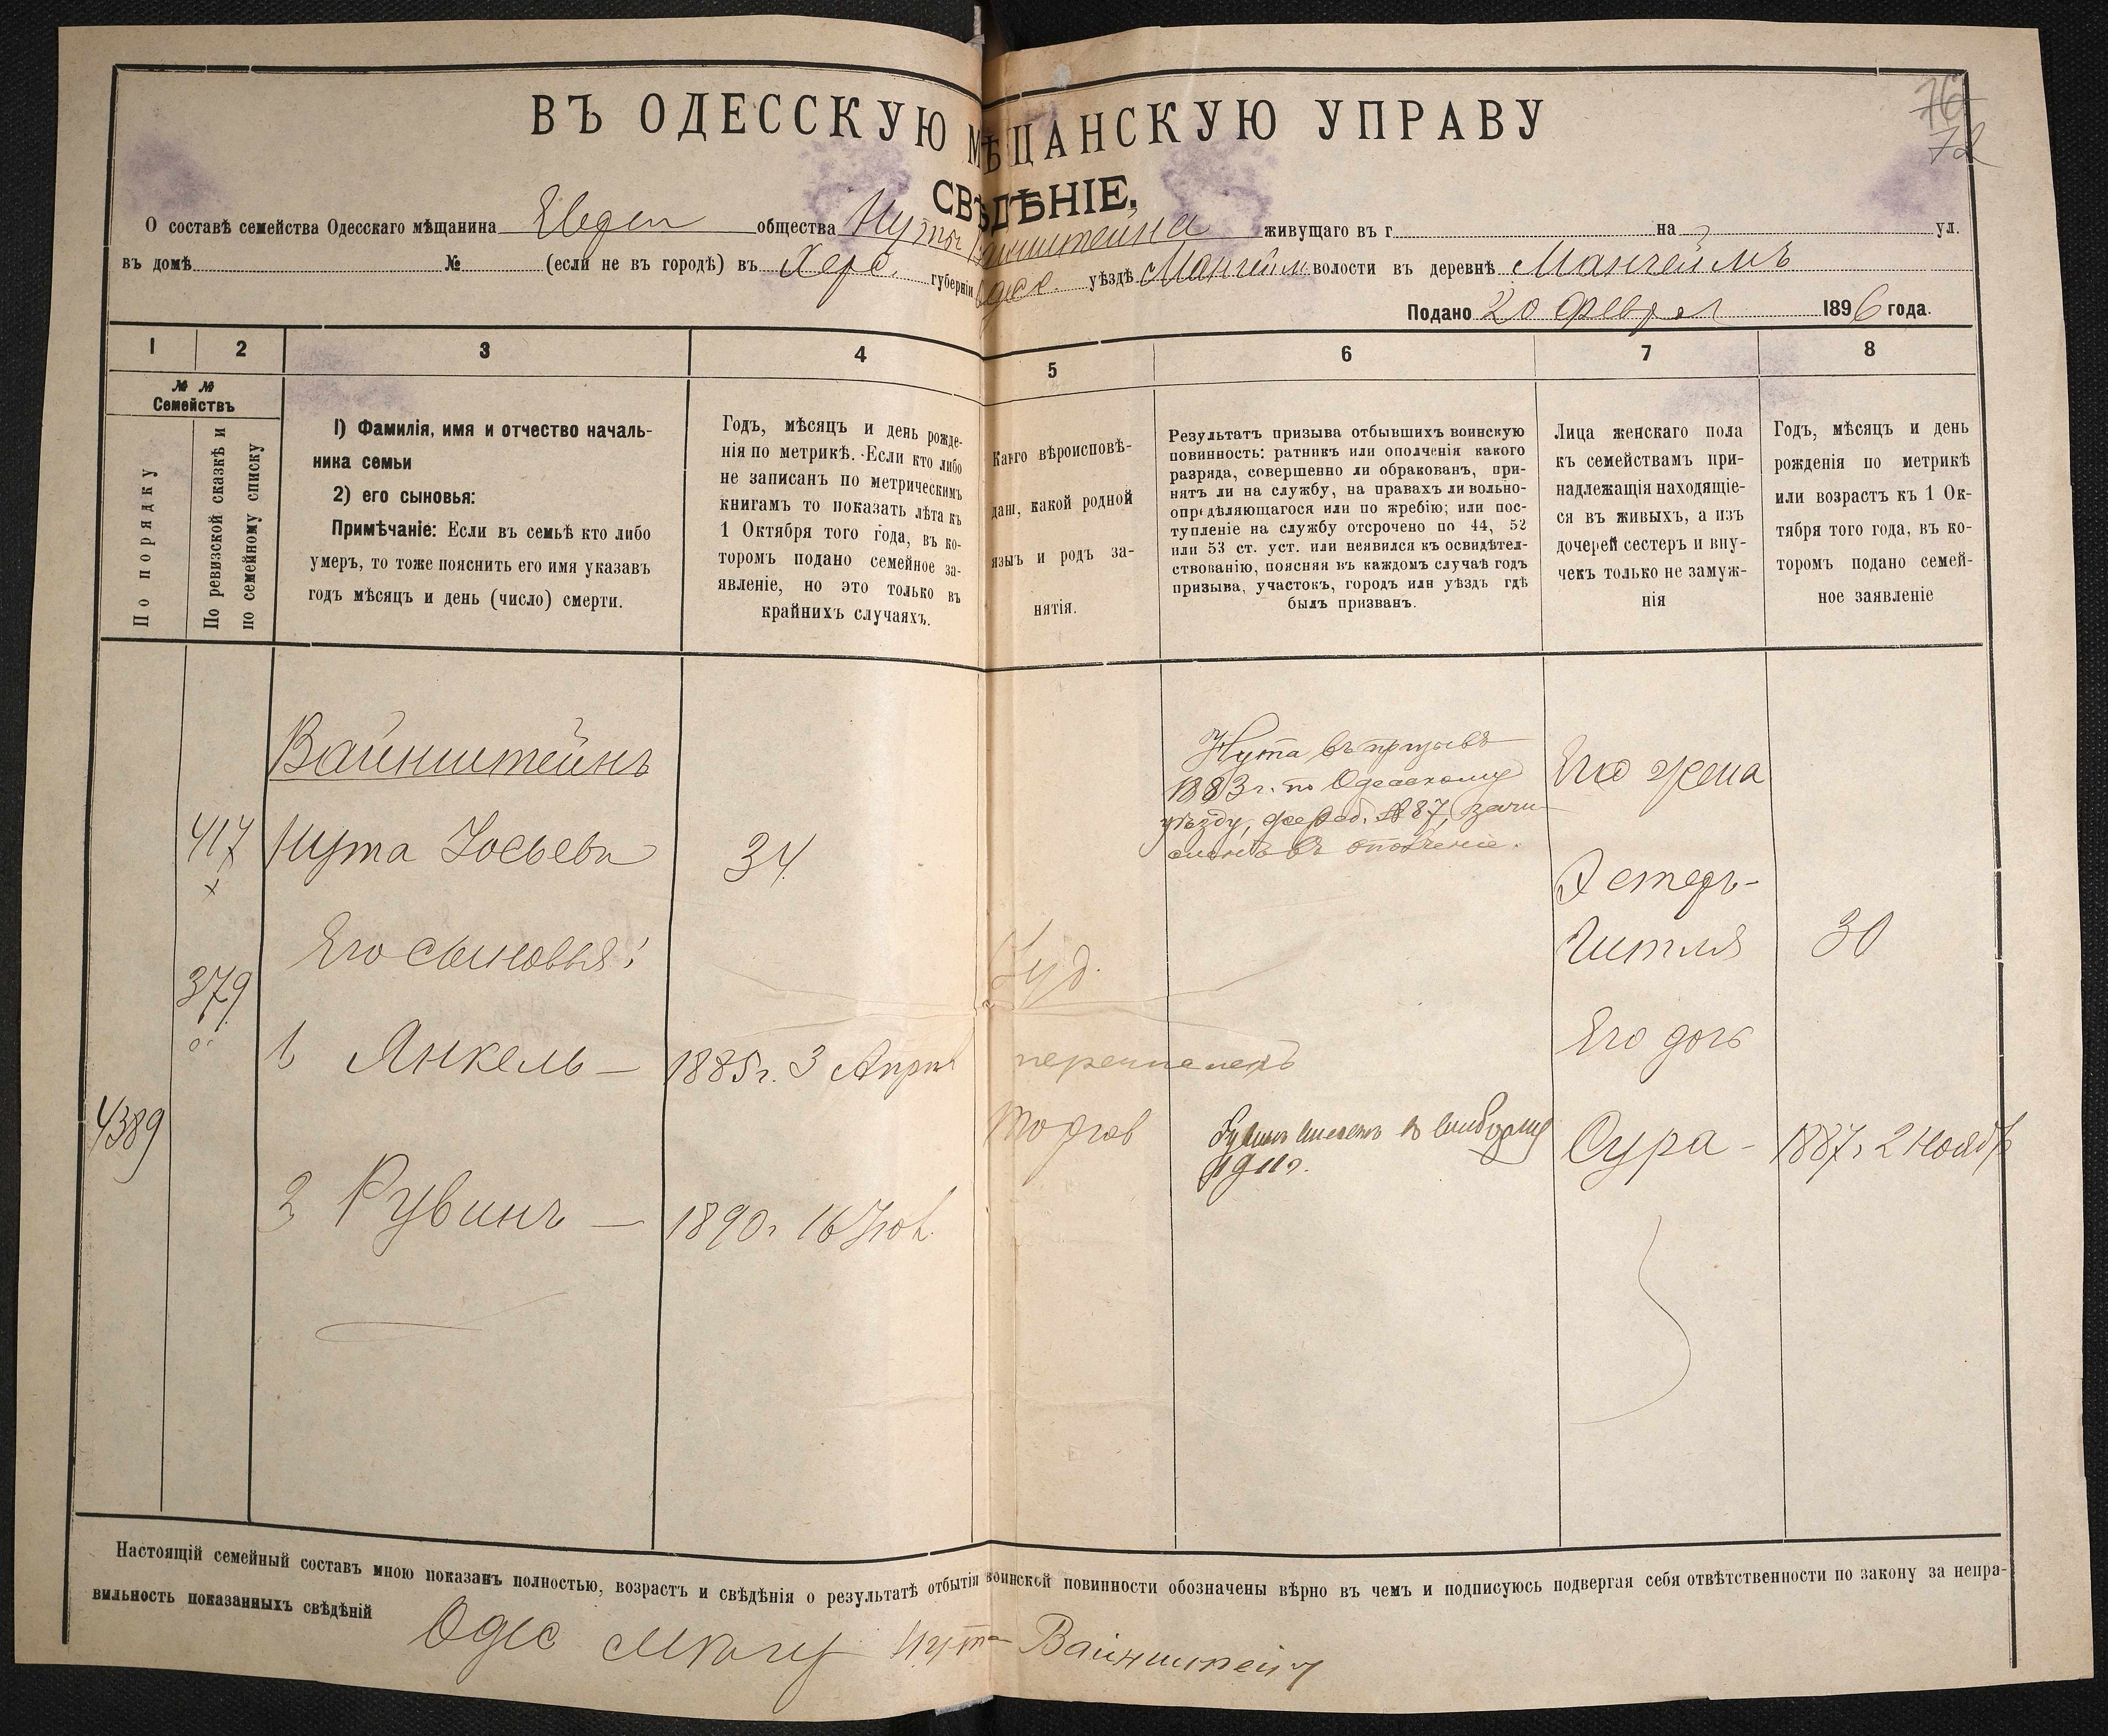 76
72
ВЪ ОДЕССКУЮ МѢЩАНСКУЮ УПРАВУ
СВѢДѢНІЕ.
О составѣ семейства Одесскаго мѣщанина общества Нуты Вайнштейна живущаго въ г. на ул.
въ домѣ № (если не въ городѣ) въ Херс. губерніи Одес. уѣздѣ Мангейм. волости въ деревнѣ Мангеймъ
Подано 20 Феврал 1896 года.
1 2 3 4 5 6 7 8
№ №
Семействъ
По порядку
По ревизской сказкѣ и
по семейному списку
1) Фамилія, имя и отчество началь-
ника семьи
2) его сыновья:
Примѣчаніе: Если въ семьѣ кто либо
умеръ, то тоже пояснить его имя указавъ
годъ мѣсяцъ и день (число) смерти.
Годъ, мѣсяцъ и день рожде-
нія по метрикѣ. Если кто либо
не записанъ по метрическимъ
книгамъ то показать лѣта къ
1 Октября того года, въ ко-
торомъ подано семейное за-
явленіе, но это только въ
крайнихъ случаяхъ.
Какго вѣроисповѣ-
данi, какой родной
языъ и родъ за-
нятія.
Результатъ призыва отбывшихъ воинскую
повинность: ратникъ или ополченія какого
разряда, совершенно ли обракованъ, при-
нятъ ли на службу, на правахъ ли вольно-
опредѣляющагося или по жребію; или пос-
тупленіе на службу отсрочено по 44, 52
или 53 ст. уст. или неявился къ освидѣтел-
ствованію, поясняя въ каждомъ случаѣ годъ
призыва, участокъ, городъ или уѣздъ гдѣ
былъ призванъ.
Лица женскаго пола
къ семействамъ при-
надлежащія находящіе-
ся въ живыхъ, а изъ
дочерей сестеръ и вну-
чекъ только не замуж-
нія
Годъ, мѣсяцъ и день
рожденія по метрикѣ
или возрастъ къ 1 Ок-
тября того года, въ ко-
торомъ подано семей-
ное заявленіе
Вайнштейнъ
417 Нута Іосьевъ 34
Нута въ призывѣ
1883 г. по Одесскому
уѣзду, жереб. № 87, зачи-
сленъ въ ополченіе.
Его жена
Эстеръ-
Гитля 30
Его сыновья:
379
Іуд.
Его дочь
1 Янкель — 1885 г. 3 Апрѣл
4389
торгов
1911 г.
Сура - 1887 г. 2 Ноябр
2 Рувинъ — 1890 г. 16 Іюл.
Настоящій семейный составъ мною показанъ полностью, возрастъ и свѣдѣнія о результатѣ отбытіи воинской повинности обозначены вѣрно въ чемъ и подписуюсь подвергая себя отвѣтственности по закону за непра-
вильность показанныхъ свѣдѣній
Одес Нута Вайнштейн